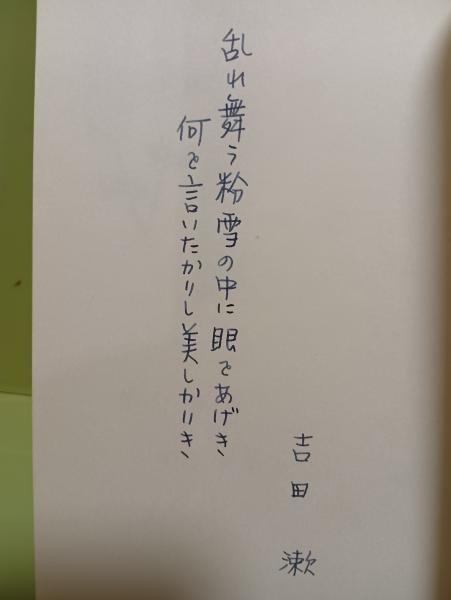 乱れ舞う粉雪の中に眼をあげき
何を言いたかりし美しかりき
吉田 漱